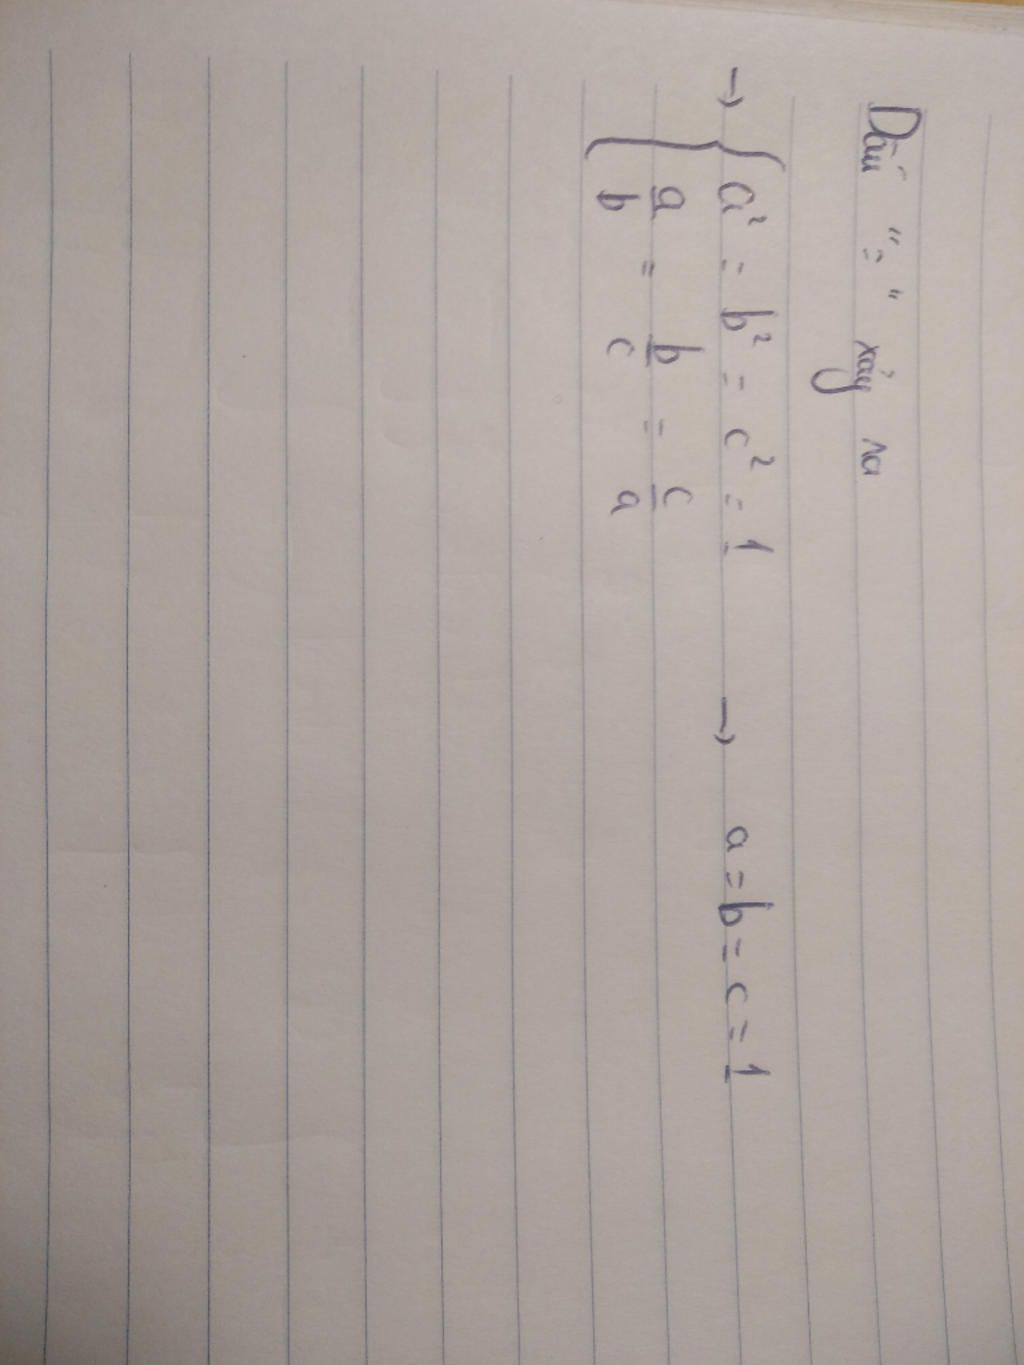 Dấu "=" xảy ra
→ { a² = b² = c² = 1 → a = b = c = 1
a/b = b/c = c/a